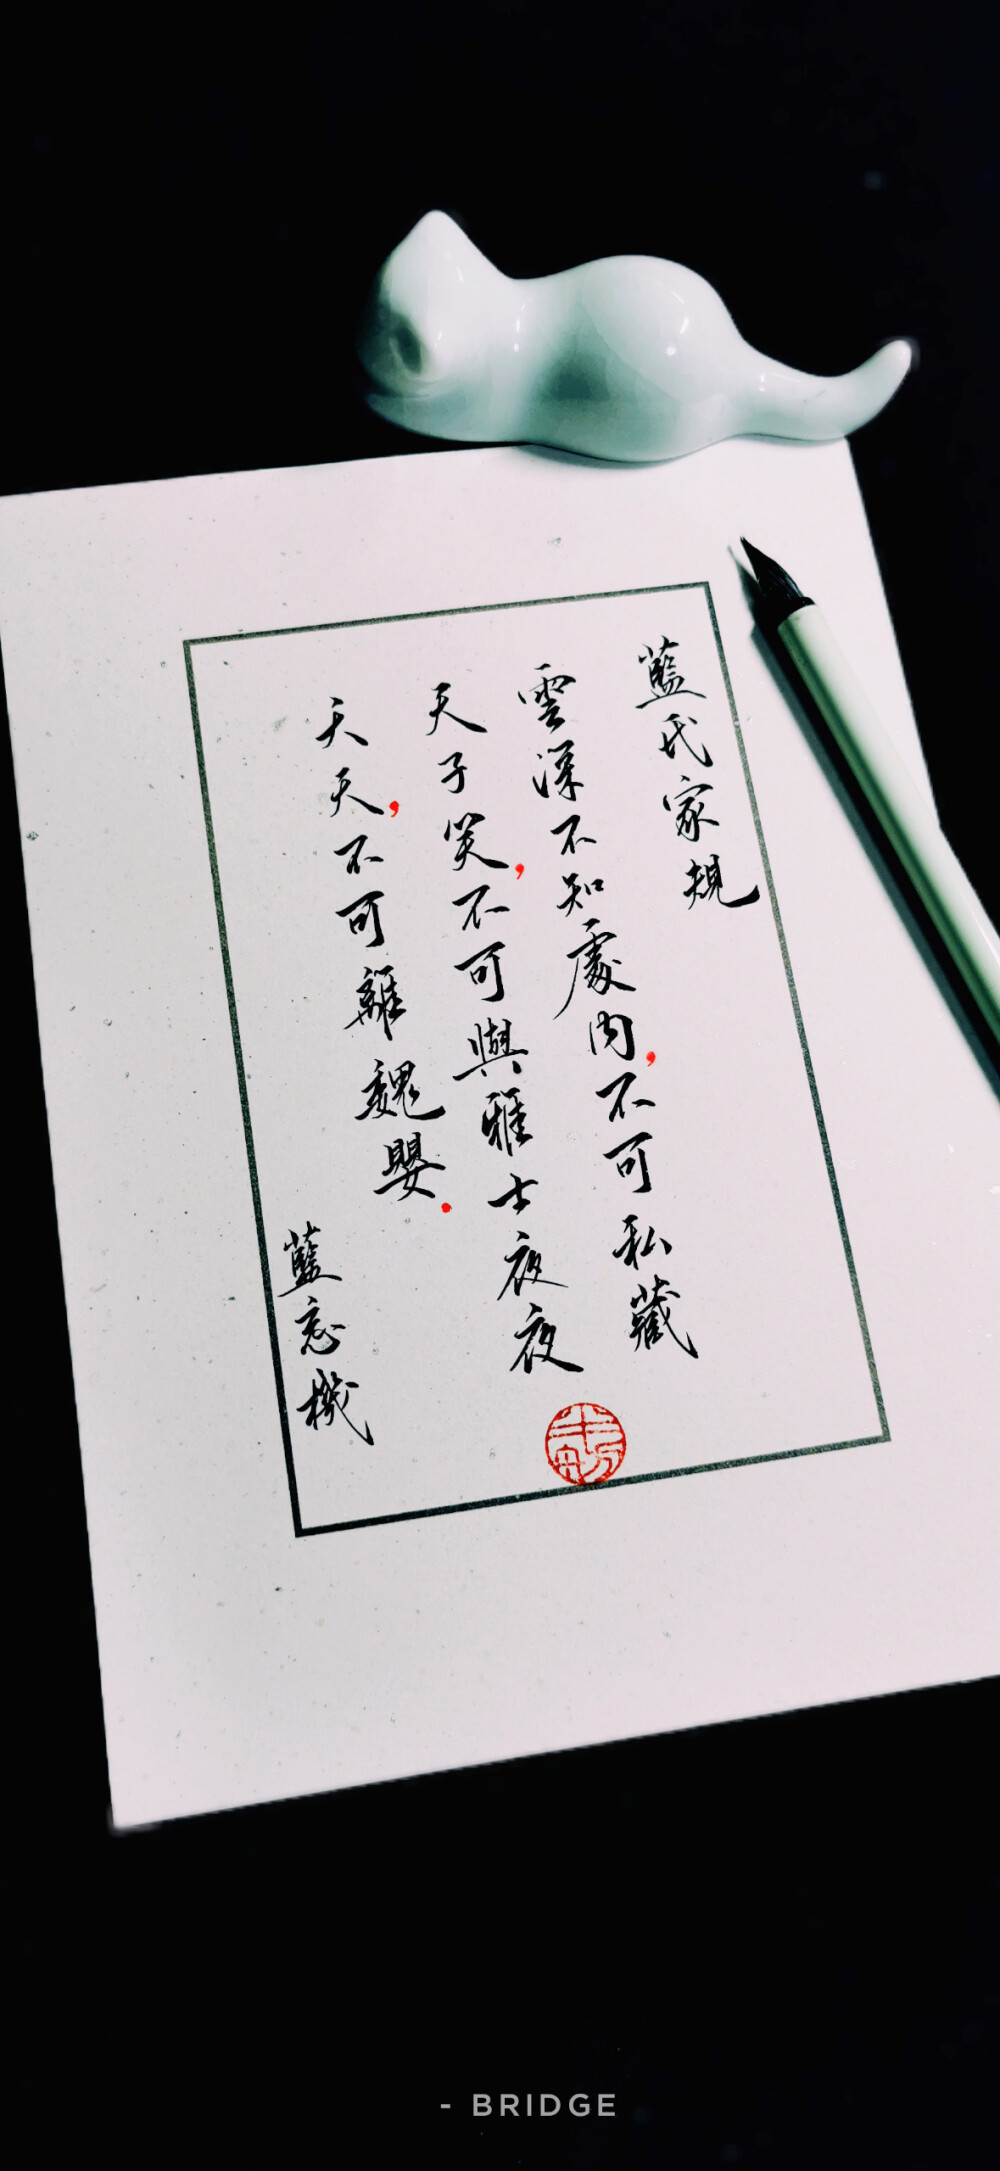 藍氏家規
雲深不知處內,不可私藏
天子笑,不可與雅士夜夜
天天,不可離魏嬰.
藍忘機
- BRIDGE